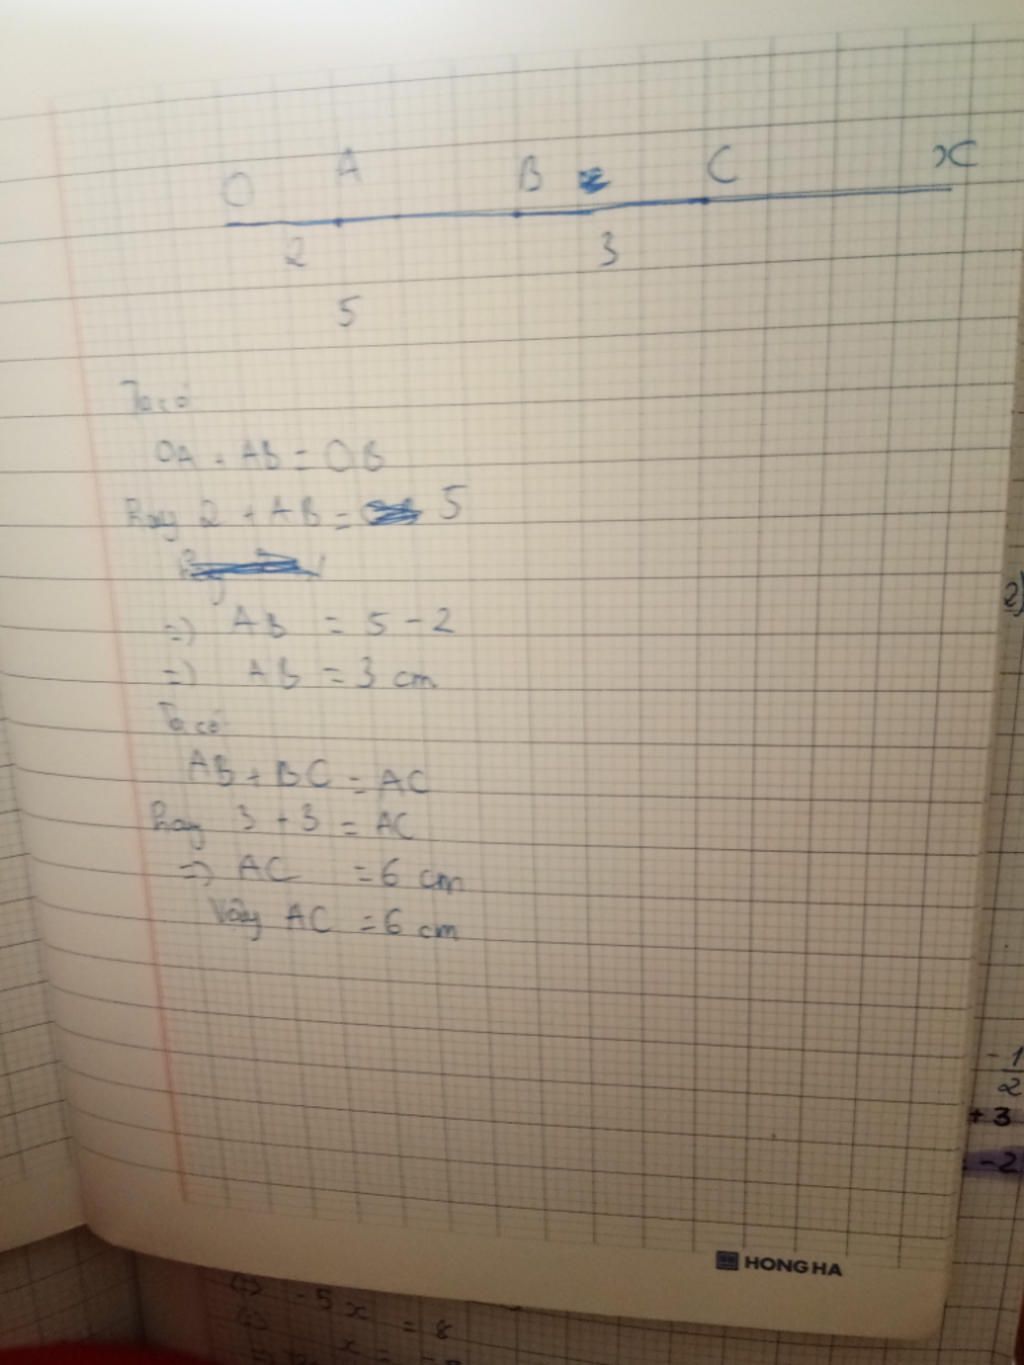 O A B C x
2 3
5
Ta có
OA + AB = OB
Hay 2 + AB = 5
=> AB = 5 - 2
=> AB = 3 cm
Ta có
AB + BC = AC
Hay 3 + 3 = AC
=> AC = 6 cm
Vậy AC = 6 cm
2)
-1
2
+ 3
-2
HONG HA
-5x = 8